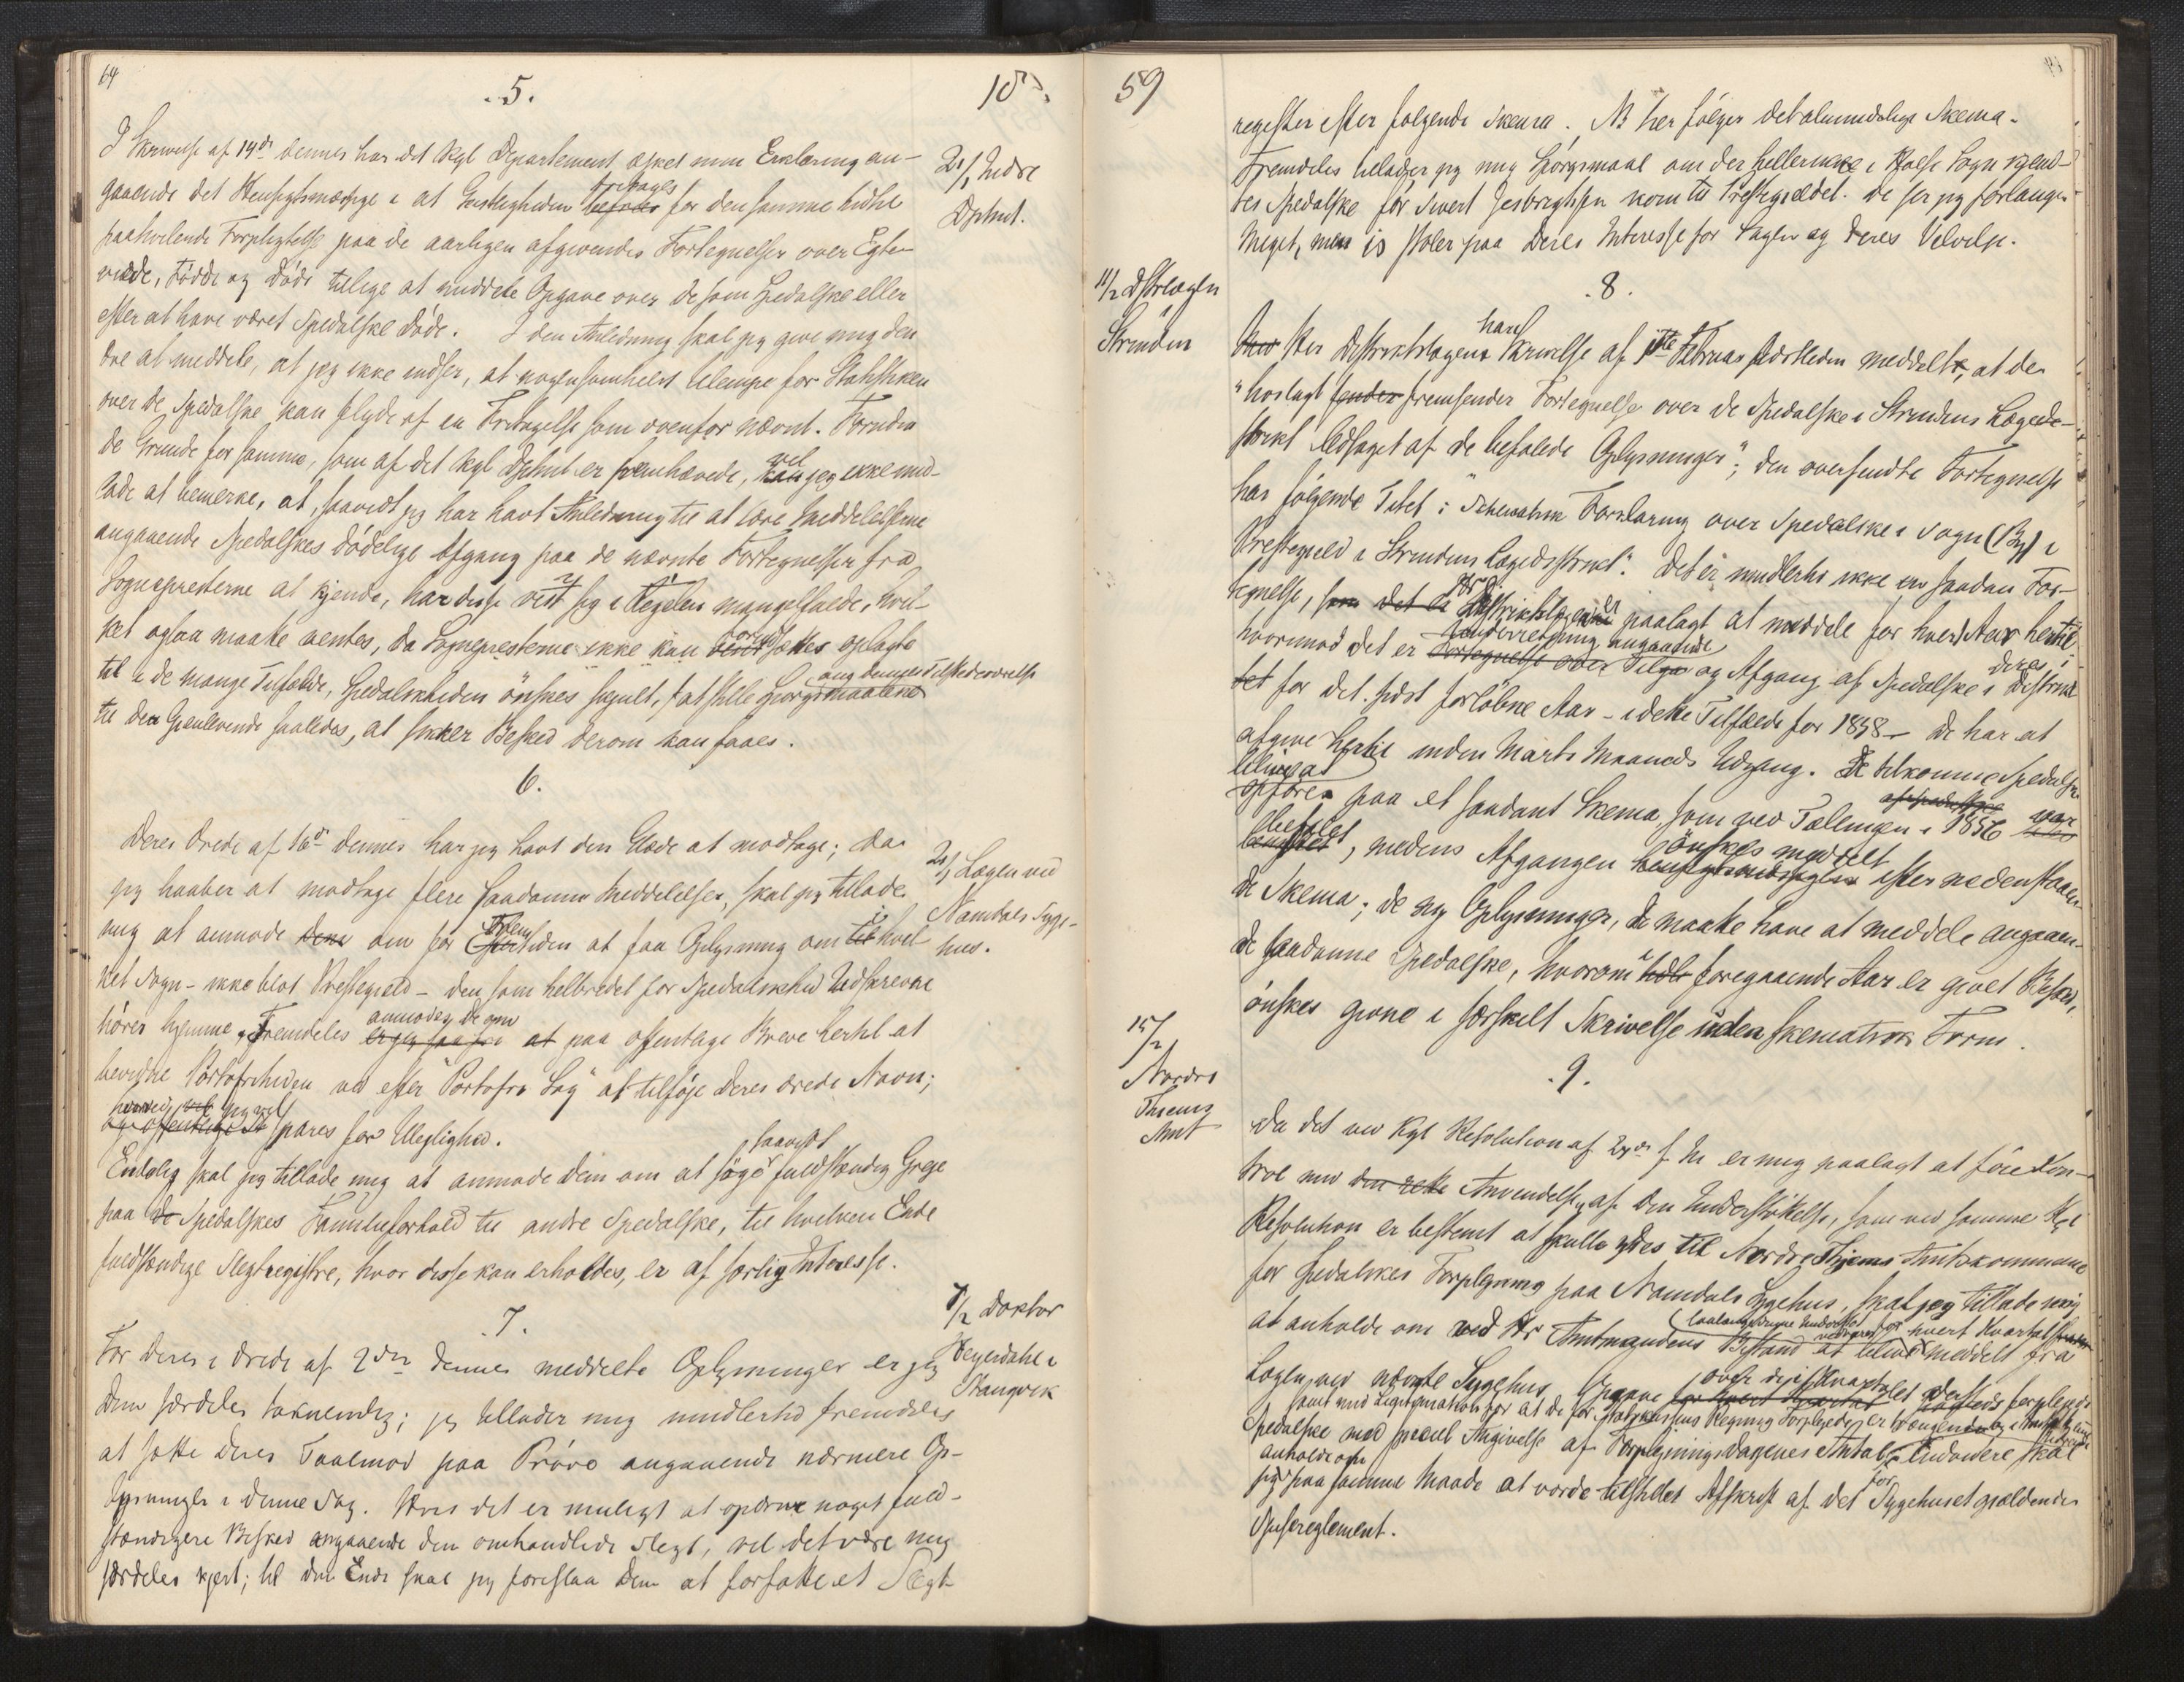 64
.5.
18
I Skrivelse af 19de dennes har det Kgl Departement æsket min Erklæring an-
gaaende det Hensigtsmæssige i at Geistligheden befries fritages for den samme hidtil
paahvilende Forpligtelse paa de aarligen afgivendes Fortegnelser over Egte-
viede, Fødde og Døde tillige at meddele Opgave over de som Spedalske eller
efter at have været Spedalske døde. I den Anledning skal jeg give mig den
Ære at meddele, at jeg ikke indser, at nogensomhelst Ulempe for Statistiken
over de Spedalske kan flyde af en Fritagelse som ovenfor nævnt. Foruden
de Grunde for samme, som af det Kgl Dptmt er fremhævede, kan vel jeg ikke und-
lade at bemerke, at, saavidt jeg har havt Anledning til at lære Meddelelserne
angaaende Spedalskes dødelige Afgang paa de nævnte Fortegnelser fra
Sognepresterne at kjende, har disse vist sig i Regelen mangelfulde, hvil-
ket ogsaa maatte ventes, da Sognepresterne ikke kan forudsættes oplagte
til i de mange Tilfælde, Spedalskheden ønskes skjult, at stille Spørgsmaalene ang dennes Tilstedeværelse
til den Gjenlevende saaledes, at sikker Besked derom kan faaes.
21/1 Indre
Dptmt.
6.
Deres Ærede af 16de dennes har jeg havt den Glæde at modtage; da
jeg haaber at modtage flere saadanne Meddelelser, skal jeg tillade
mig at anmode Dem om for Fremtiden at faa Oplysning om til hvil-
ket Sogn - ikke blot Prestegjeld - den som helbredet for Spedalskhed Udskrevne
hører hjemme. Fremdeles anmodes De om at paa offentlige Breve hertil at
bevidne Portofriheden ved efter "Portofri Sag" at tilføje Deres ærede Navn;
hvorved jeg vel spares for Uleilighed.
Endelig skal jeg tillade mig at anmode Dem om at søge saavidt fuldstændig Greje
paa de Spedalskes Familieforhold til andre Spedalske, til hvilken Ende
fuldstændige Slegtregistre, hvor disse kan erholdes, er af særlig Interesse.
21/1 Lægen ved
Namdals Syge-
hus.
.7.
For Deres i Ærede af 2den dennes meddelte Oplysninger er jeg
Dem særdeles taknemlig; jeg tillader mig imidlertid fremdeles
at sætte Deres Taalmod paa Prøve angaaende nærmere Op-
lysninger i denne Sag. Hvis det er muligt at opdrive noget fuld-
stændigere Besked angaaende den omhandlede Slegt, vil det være mig
særdeles kjert; til den Ende skal jeg foreslaa Dem at forfatte et Slegt-
8/2 Doktor
Heyerdahl i
Stangvik
59
register efter følgende Skema. NB her følger det almindelige Skema.
Fremdeles tillader jeg mig Spørgsmaal om der hellerikke i Halse Sogn kjend-
tes Spedalske før Sivert Jesbrigtsen kom til Prestegjeldet. De ser jeg forlanger
Meget, men jeg stoler paa Deres Interesse for Sagen og Deres Velvilje.
.8.
11/2 Dstrlægen
i
Strinden
Hr Distriktslægen har i Skrivelse af 1ste Februar sidstleden meddelt, at de
"hoslagt sender fremsender Fortegnelse over de Spedalske i Strindens Lægedi-
strikt ledsaget af de befalede Oplysninger"; den oversendte Fortegnelse
har følgende Titel: "Schematisk Forklaring over Spedalske i Sogn (By) i
Prestegjeld i Strindens Lægedistrikt". Det er imidlertid ikke en saadan For-
tegnelse, som det er Hr Distriktslægen paalagt at meddele for hvert Aar hertil,
hvorimod det er Fortegnelse over Underretning angaaende Tilgang og Afgang af Spedalske i deres Distrikt
for det sidst forløbne Aar - i dette Tilfælde for 1858 - De har at
afgive hertil inden Marts Maaneds Udgang. De tilkomne Spedalske
bliver at opføre paa et saadant Skema, som ved Tællingen i 1856 var
befalet, medens Afgangen ønskes meddelt efter nedenstaaen-
de Skema; de ny Oplysninger, De maatte have at meddele angaaen-
de saadanne Spedalske, hvorom i foregaaende Aar er givet Besked,
ønskes givne i særskilt Skrivelse uden skematisk Form.
.9.
15/2
Nordre
Thjems
Amt
Da det ved Kgl Resolution af 29de f. M. er mig paalagt at føre Kon-
trol med den rette Anvendelse af den Understøttelse, som ved samme Kgl
Resolution er bestemt at skulle ydes til Nordre Thjems Amtskommune
for Spedalskes Forplejning paa Namdals Sygehus, skal jeg tillade mig
at anholde om ved Hr Amtmandens Bistand at blive for hvert Kvartal meddelt fra
Lægen ved nævnte Sygehus Opgave over de i Kvartalet dersteds forplejede
Spedalske med speciel Angivelse af Forplejningsdagenes Antal. Endvidere skal
jeg anholde om paa samme Maade at vorde tilstillet Afskrift af det for Sygehuset gjældende
Spisereglement.